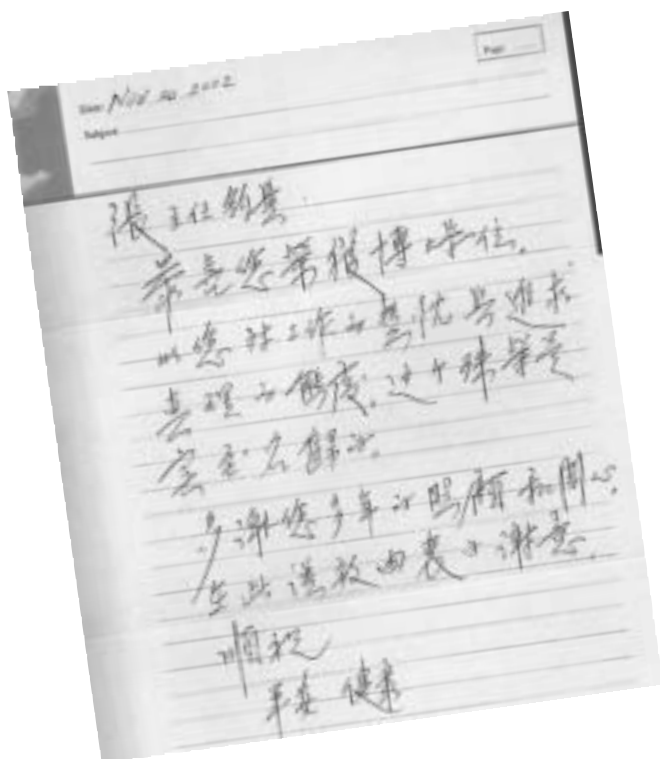 Page:
Date: Nov 20 2002
Subject:
張主任鈞鑒:
恭喜您榮獲博士学位。
以您对工作的熱忱与追求
真理的態度,这个殊榮是
实至名歸的。
多謝您多年的照顧和関心,
在此謹致由衷的謝意。
順祝
平安 健康